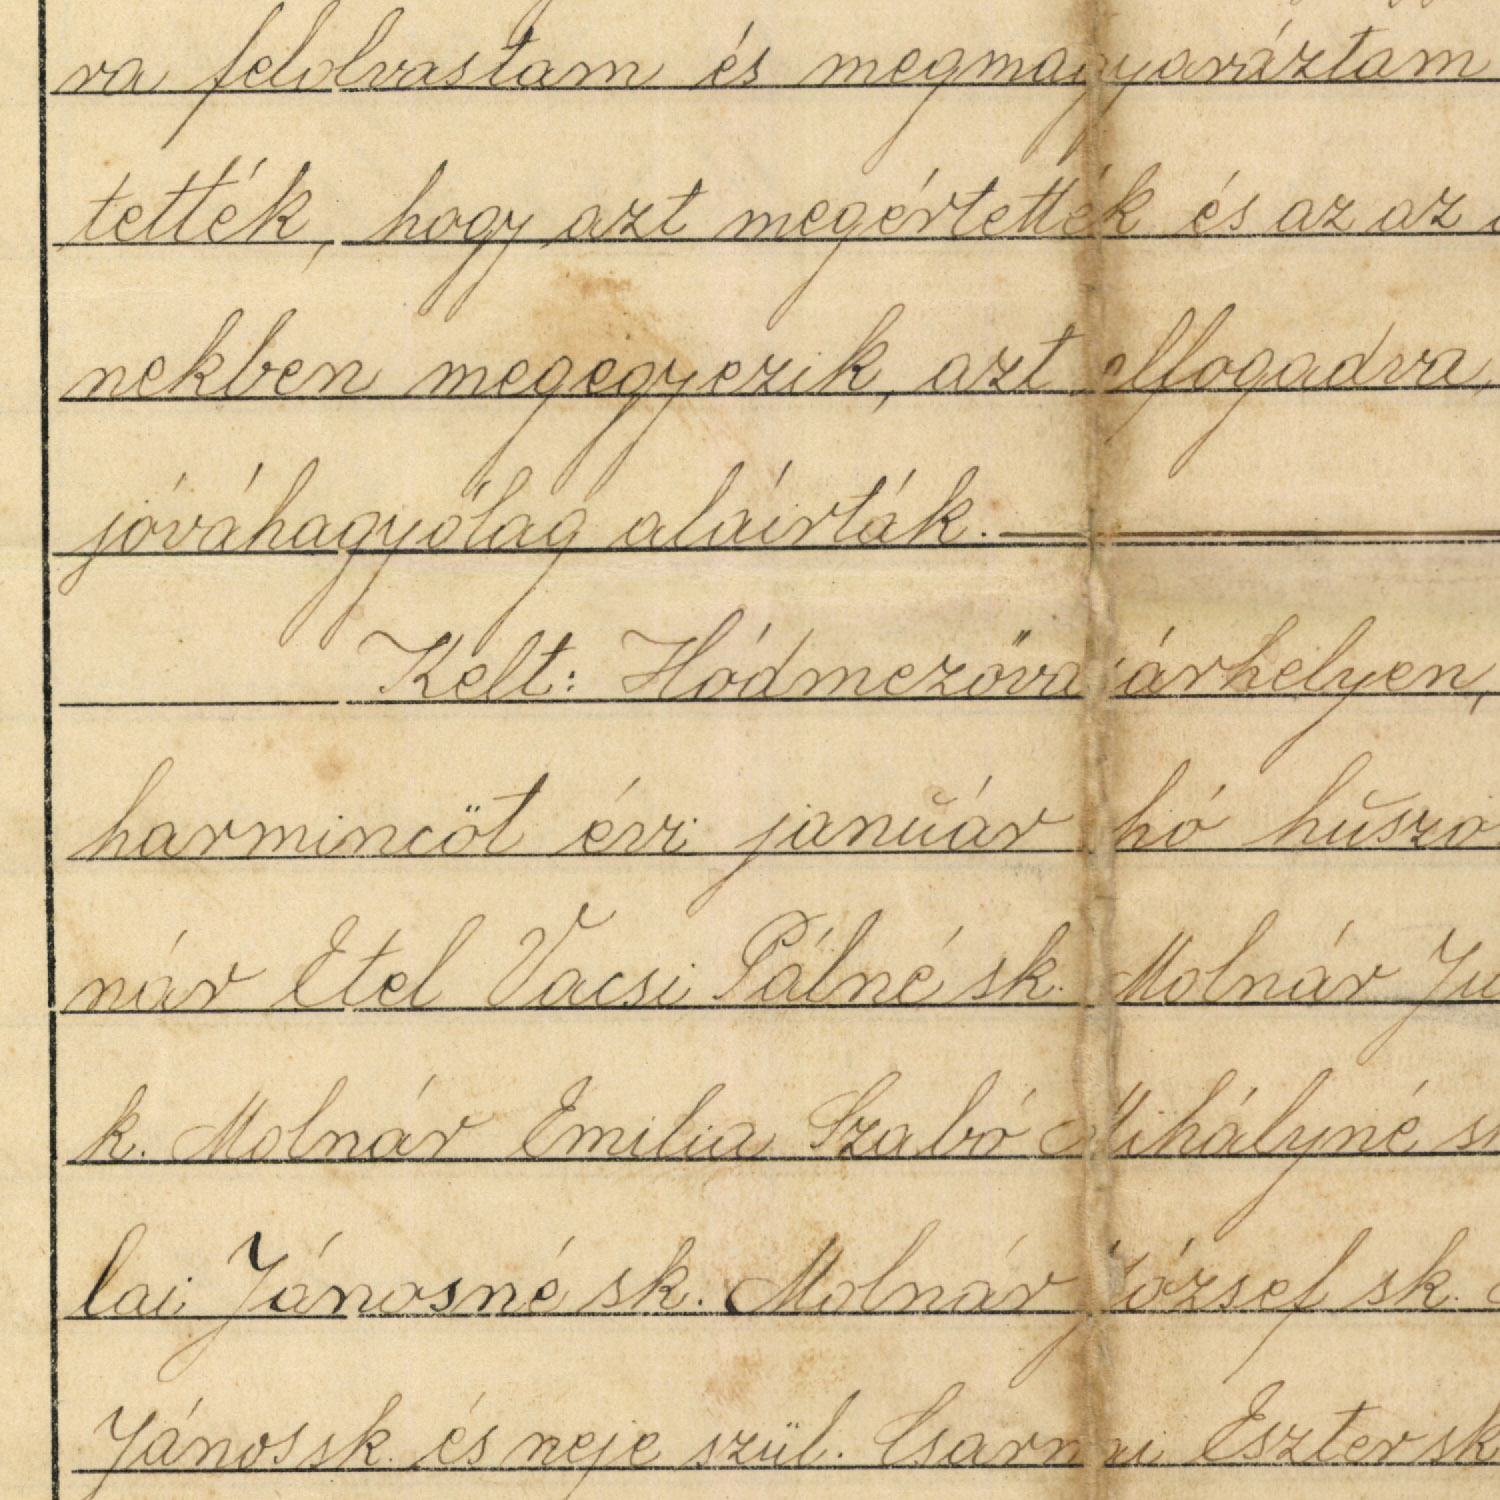 ra felolvastam és megmagyaráztam
tették, hogy azt megértették és az az
nekben megegyezik, azt elfogadva,
jóváhagyólag aláirták.
Kelt: Hódmezővásárhelyen,
harmincöt évi január hó huszo
nár Etel Vacsi Pálné sk. Molnár Ju
k. Molnár Emilia Szabó Mihályné s
lai Jánosné sk. Molnár József sk.
János sk. és neje szül. Eszter sk